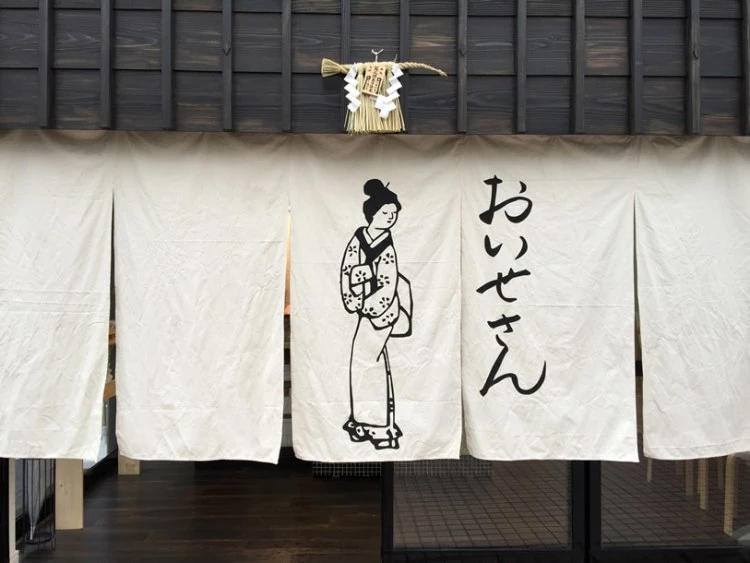 おいせさん